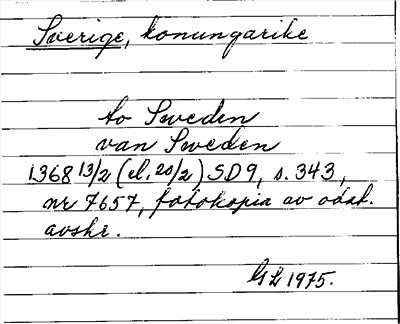 Sverige, konungarike
to Sweden
van Sweden
1368 13/2 (el. 20/2) SD9, s. 343,
nr 7657, fotokopia av odat.
avskr.
GL 1975.